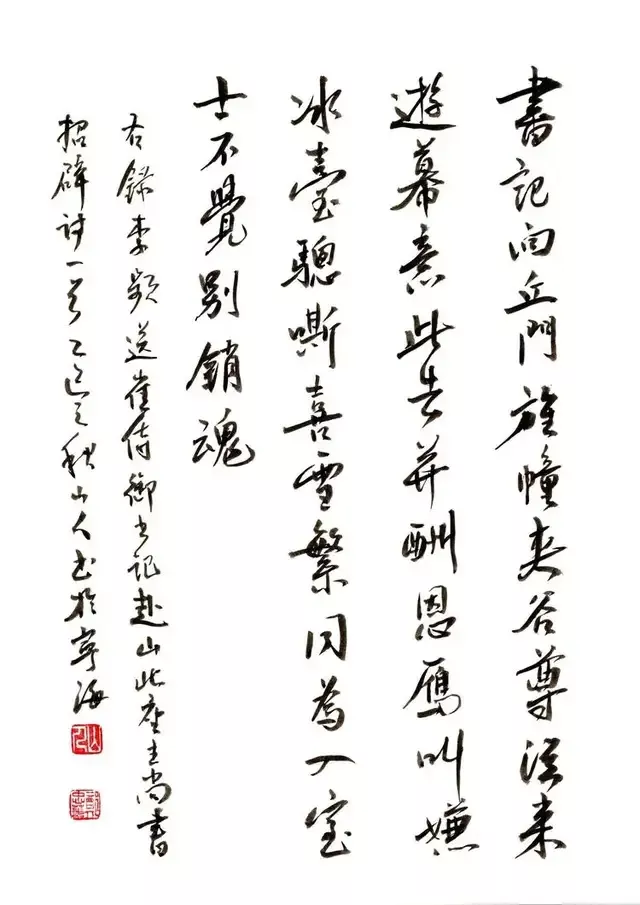 書記向丘門旌幢夾谷尊從來
遊幕意此去并酬恩雁叫嫌
冰臺驄嘶喜雪繁同為入室
士不覺別銷魂
右錄李頻送崔侍御書記赴山此座主尚書
招辟詩一首乙巳之秋山人書於寧海